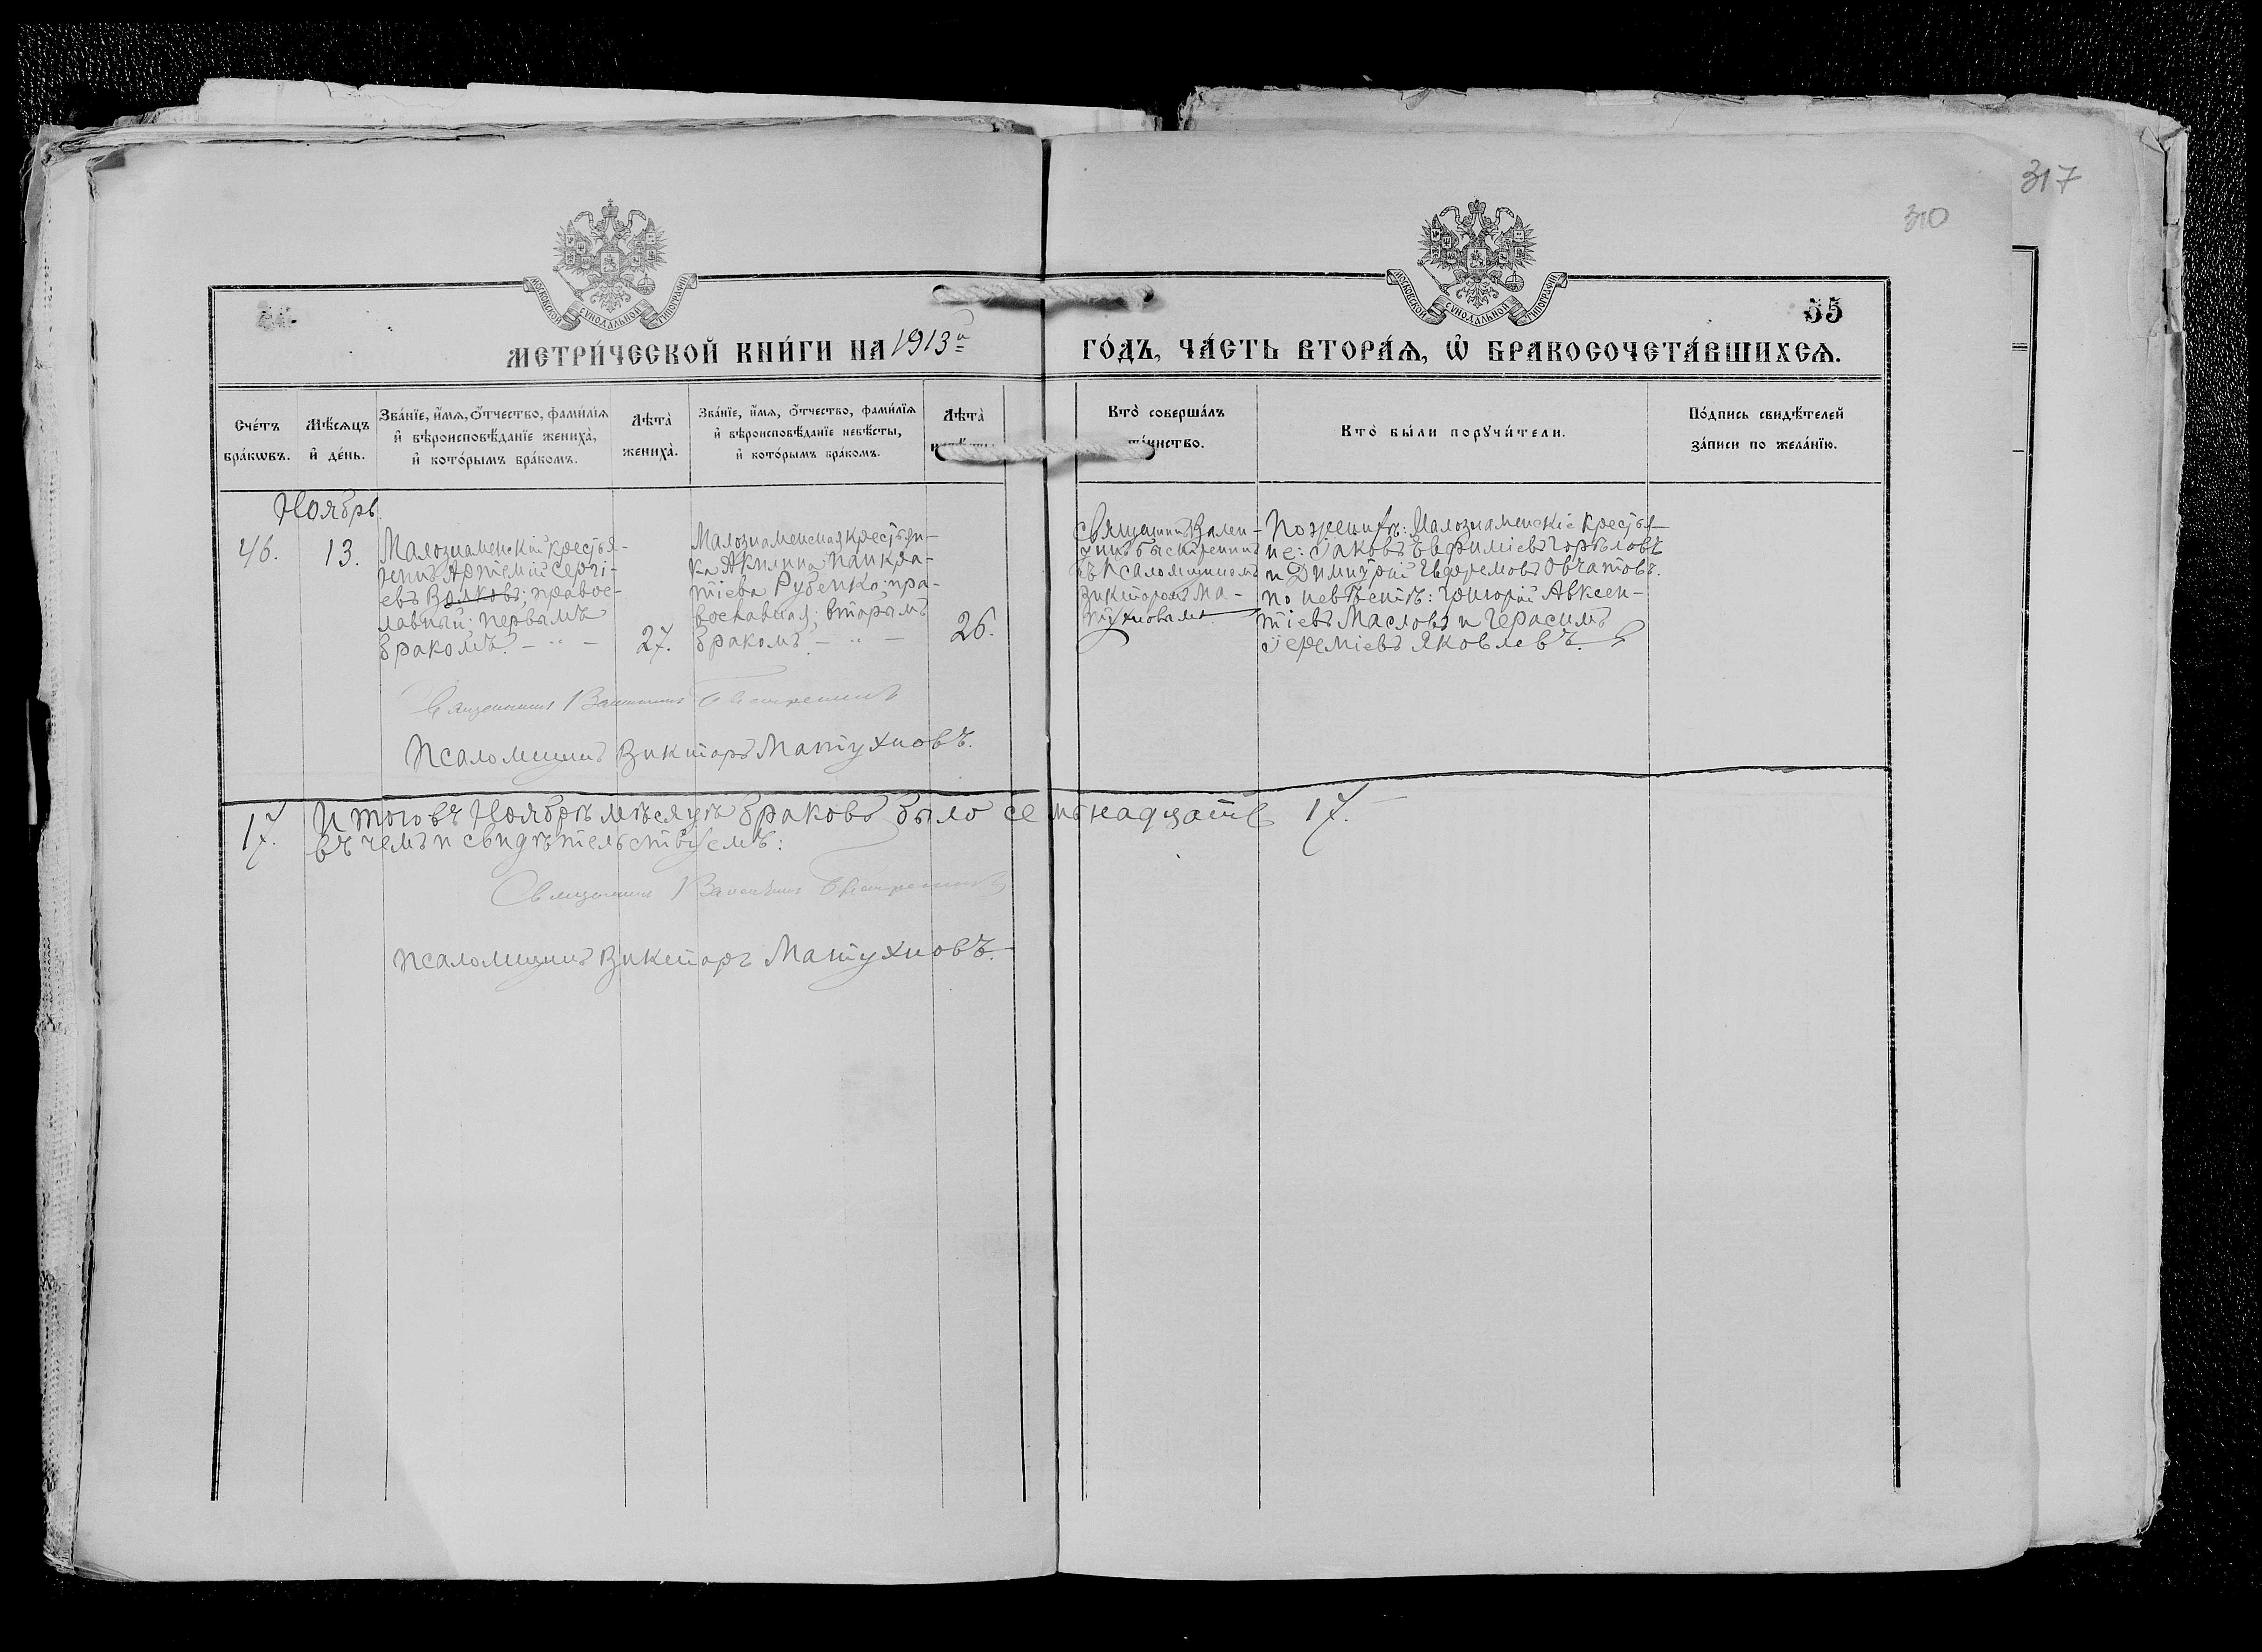 317
310
МОСКОВСКОЙ СУНОДАЛЬНОЙ ТИПОГРАФІИ
МОСКОВСКОЙ СУНОДАЛЬНОЙ ТИПОГРАФІИ
55
МЕТРИ́ЧЕСКОЙ КНИ́ГИ НА 1913й
ГО́ДЪ, ЧА́СТЬ ВТОРА́Ѧ, Ѽ БРАКОСОЧЕТА́ВШИХСѦ.
Сче́тъ бра́кѡвъ.
Мѣ́сяцъ и҆ де́нь.
Зва́нїе, и҆́мѧ, ѻ҆́тчество, фами́лїѧ
и҆ вѣроисповѣ́данїе жениха̀,
и҆ кото́рымъ бра́комъ.
Лѣта̀ жениха̀.
Зва́нїе, и҆́мѧ, ѻ҆́тчество, фами́лїѧ
и҆ вѣроисповѣ́данїе невѣ́сты,
и҆ кото́рымъ бра́комъ.
Лѣта̀
Кто̀ соверша́лъ
та́инство.
Кто̀ бы́ли порꙋчи́тели.
По́дпись свидѣ́телей
за́писи по жела́нїю.
Ноябрь
46.
13.
Малознаменскій крестья-
нинъ Артемій Сергі-
евъ Волковъ; правос-
лавный; первымъ
бракомъ. – " –
27.
Малознаменская крестьян-
ка Акилина Панкра-
тіева Рубенко; пра-
вославная; вторымъ
бракомъ. – " –
26.
Священникъ Вален-
тинъ Быстренинъ
съ псаломщикомъ
Викторомъ Ма-
тухновымъ.
По женихѣ: Малознаменскіе крестья-
не: Іаковъ Евфиміевъ Горѣловъ
и Димитрій Ефремовъ Овчатовъ.
по невѣстѣ: Григорій Авксен-
тіевъ Масловъ и Герасимъ
Іереміевъ Яковлевъ.
Священникъ Валентинъ Быстренинъ
Псаломщикъ Викторъ Матухновъ.
17. Итого въ Ноябрѣ мѣсяцѣ браковъ было семьнадцать 17.
въ чемъ и свидѣтельствуемъ:
Священникъ Валентинъ Быстренинъ
Псаломщикъ Викторъ Матухновъ.